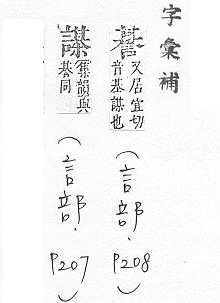 字彙補
諅 又居宜切
音基謀也
(言部.
P208)
集韻與
同
(言部.
P207)